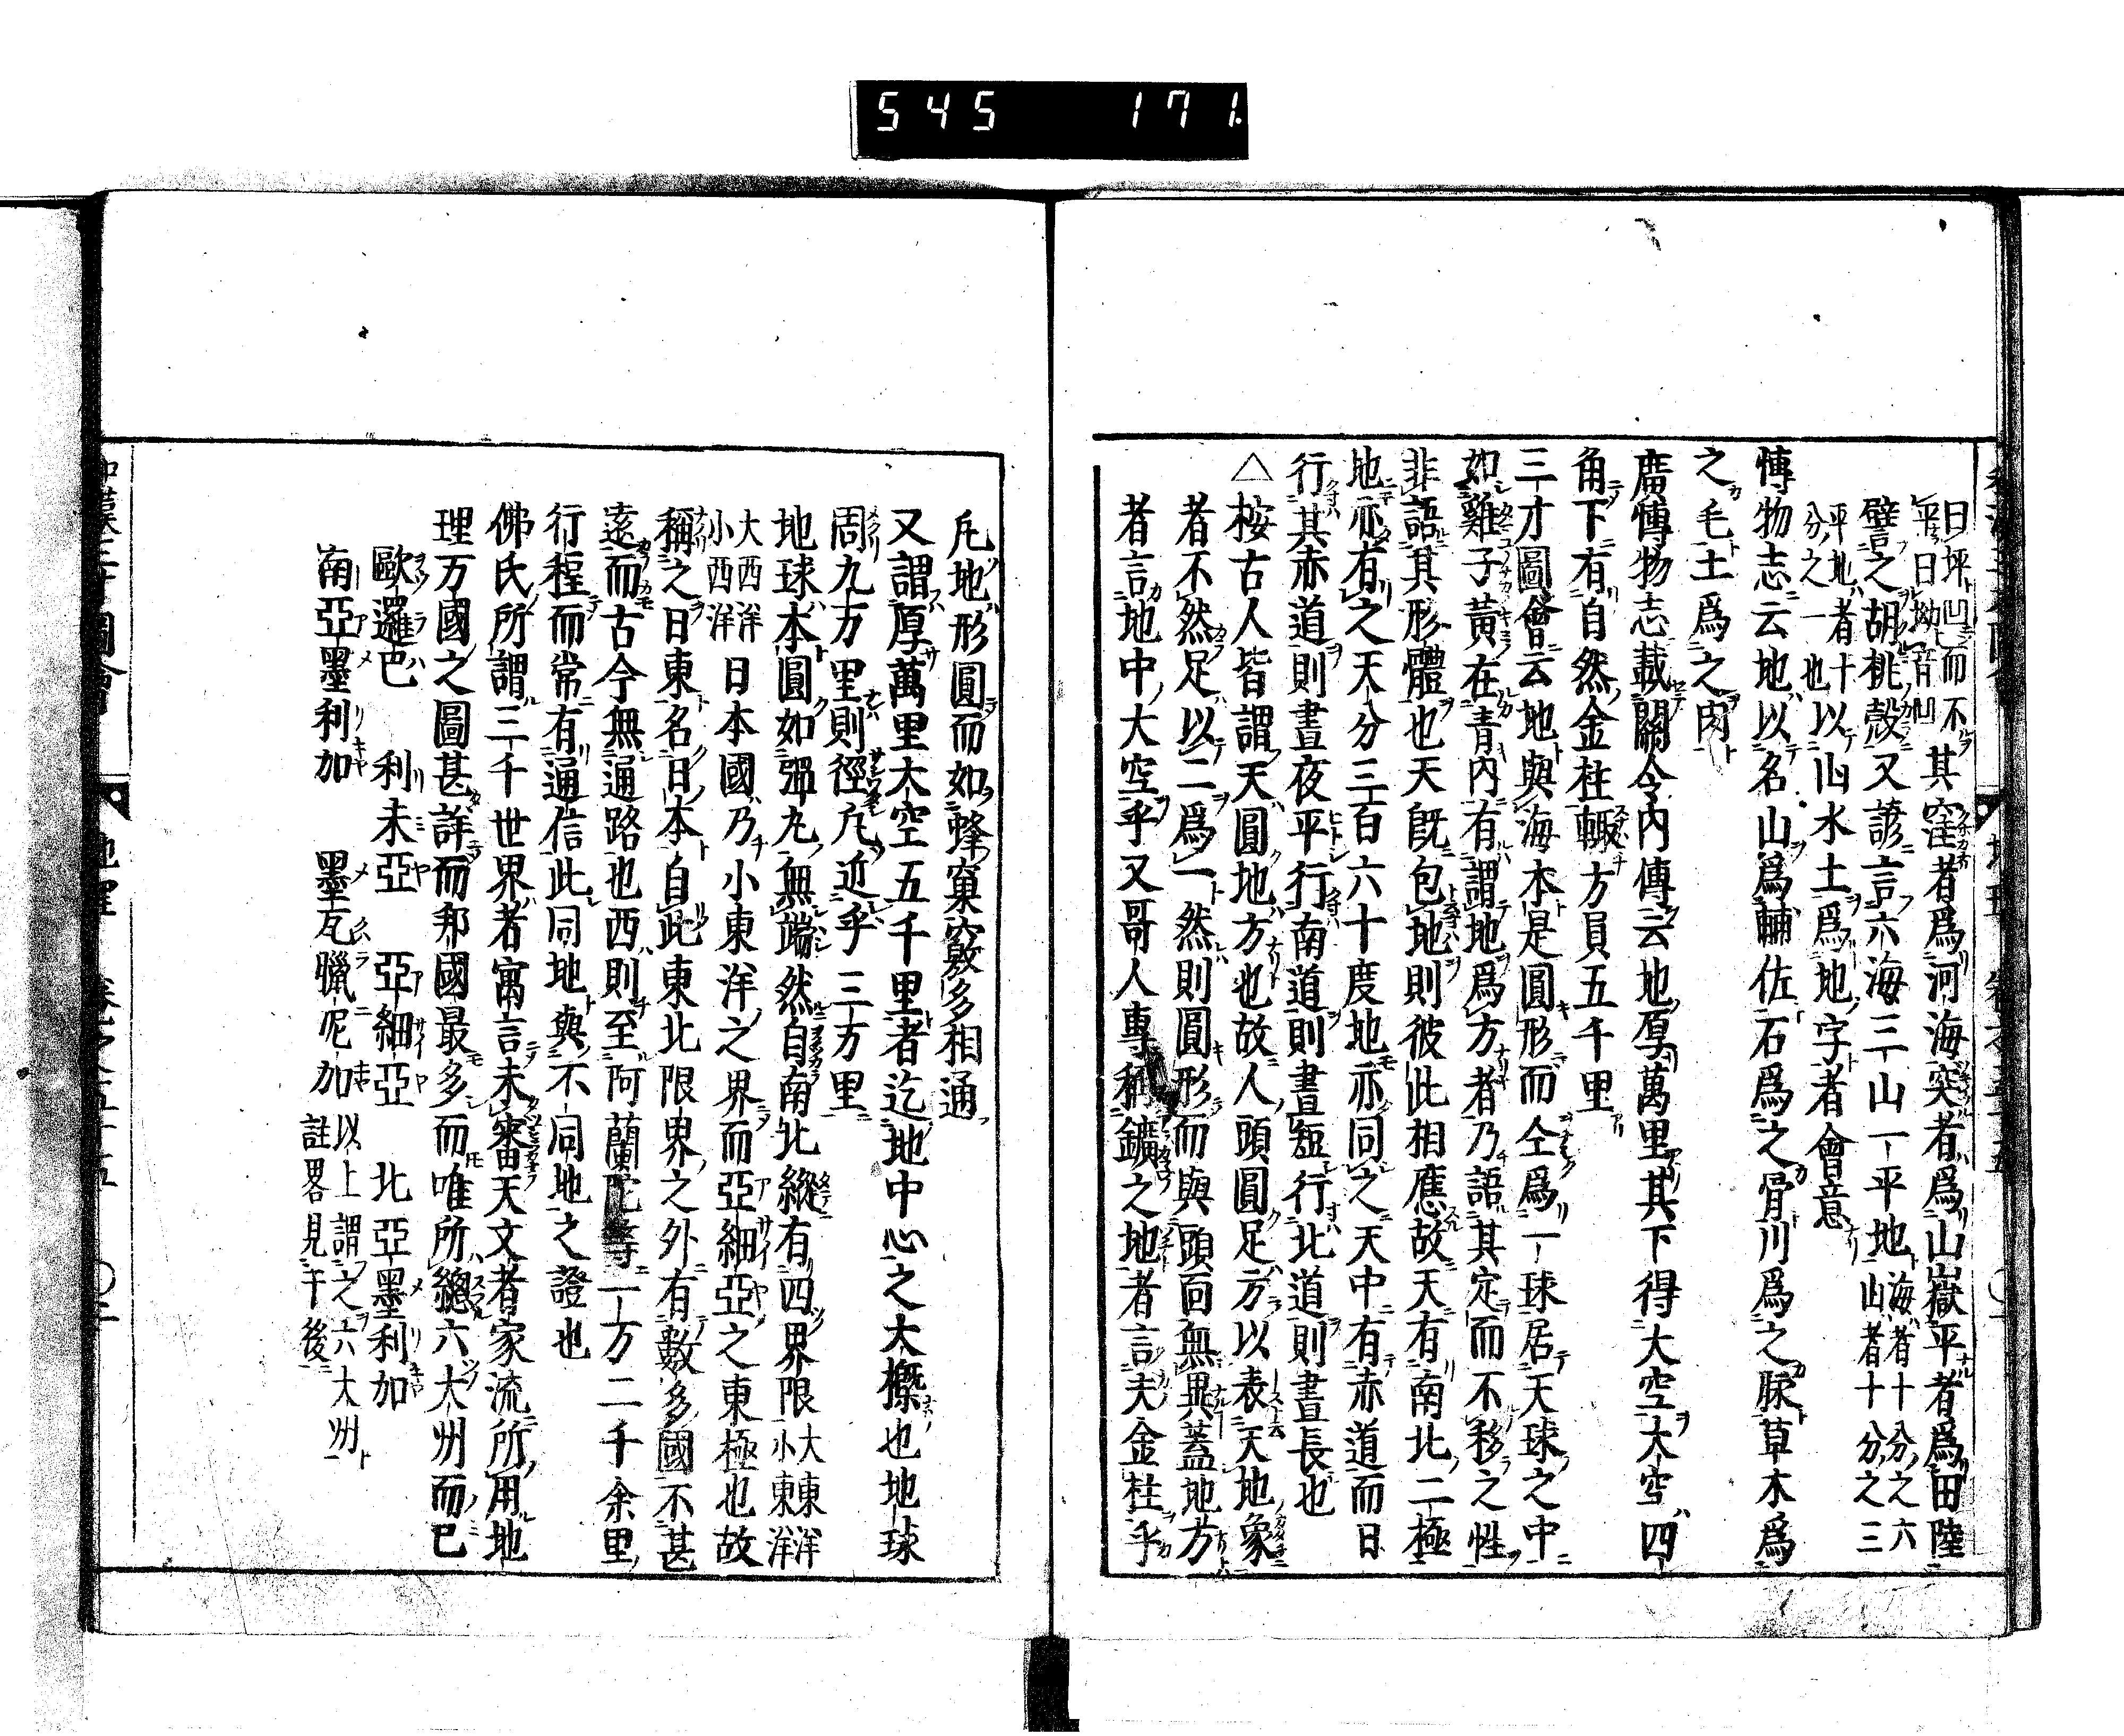 545 171
曰坪凹而不
平曰坳音凹
其窪者爲河海突者爲山嶽平者爲田陸
譬之胡桃殼又諺言六海三山一平地
海者十分之六
山者十分之三
平地者十
分之一也
以凸水土爲地字者會意
博物志云地以名山爲輔佐石爲之骨川爲之脉草木爲
之毛土爲之肉
廣博物志載關令內傳云地厚萬里其下得大空大空四
角下有自然金柱輙方員五千里
三才圖會云地與海本是圓形而仝爲一球居天球之中
如雞子黃在青內有謂地爲方者乃語其定而不移之性
非語其形體也天旣包地則彼此相應故天有南北二極
地亦有之天分三百六十度地亦同之天中有赤道而日
行其赤道則晝夜平行南道則晝短行北道則晝長也
△桉古人皆謂天圓地方也故人頭圓足方以表天地象
者不然足以二爲一然則圓形而與頭靣無異蓋地方
者言地中大空乎又哥人專稱鑛之地者言夫金柱乎
凡地形圓而如蜂窠竅多相通
又謂厚萬里大空五千里者迄地中心之大槩也地球
周九万里則徑凡近乎三万里
地球本圓如彈丸無端然自南北縱有四界限
大東洋
小東洋
大西洋
小西洋
日本國乃小東洋之界而亞細亞之東極也故
稱之日東名日本自此東北限界之外有數多國不甚
遠而古今無通路也西則至阿蘭陀等一万二千余里
行程而常有通信此同地與不同地之證也
佛氏所謂三千世界者寓言未審天文者家流所用地
理万國之圖甚詳而邦國最多而唯所總六大州而已
歐邏巴 利未亞 亞細亞 北亞墨利加
南亞墨利加 墨瓦臘呢加
以上謂之六大州
註畧見于後